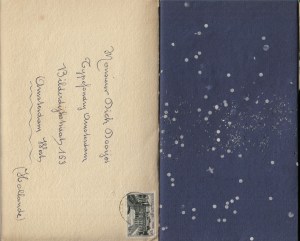 Monsieur Dick Dooijes
Typefoundry Amsterdam
Bilderdijkstraat 153
Amsterdam West
(Hollande)